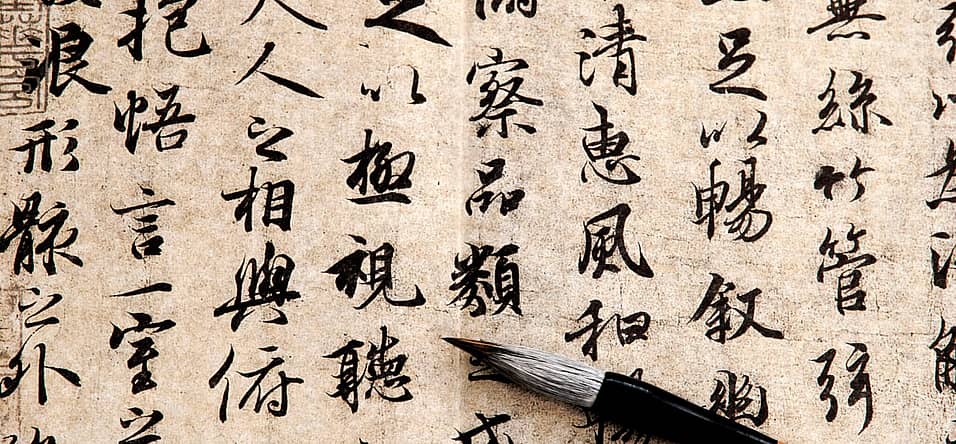 以為流
無絲竹管弦
足以暢叙幽
清惠風和
察品類之
足以極視聽
人之相與俯
抱悟言一室之
浪形骸之外